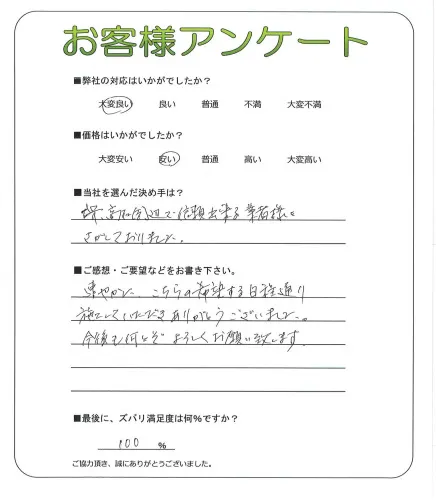 お客様アンケート
■弊社の対応はいかがでしたか？
大変良い 良い 普通 不満 大変不満
■価格はいかがでしたか？
大変安い 安い 普通 高い 大変高い
■当社を選んだ決め手は？
周辺で信頼出来る業者様を
さがしておりました。
■ご感想・ご要望などをお書き下さい。
速やかに、こちらの希望する日程通り
施工していただきありがとうございました。
今後も何とぞよろしくお願い致します
■最後に、ズバリ満足度は何%ですか？
100 %
ご協力頂き、誠にありがとうございました。